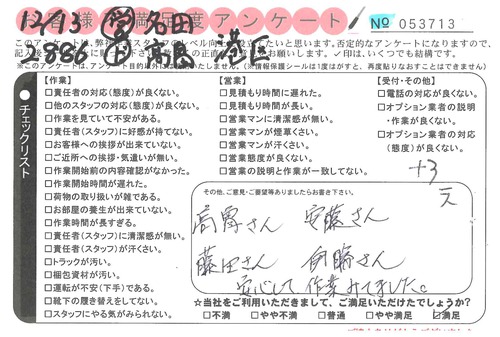 12/13 営 名田
様満足度アンケート
№ 053713
886 港区
このアンケートは、弊社
レベル向上
たいと思います。否定的なアンケートになりますので、
記入後
の正直
✓印は、いくつでも結構です。
※このアンケートは、アンケート目的以外
いたしません。(※情報保護シールは1度がはすと、再度貼りなおすことはできません)
チェックリスト
【作業】
□責任者の対応(態度)が良くない。
□他のスタッフの対応(態度)が良くない。
□作業を見ていて不安がある。
□責任者(スタッフ)に好感が持てない。
□お客様への挨拶が出来ていない。
□ご近所への挨拶・気遣いが無い。
□作業開始前の内容確認がなかった。
□作業開始時間が遅れた。
□荷物の取り扱いが雑である。
□お部屋の養生が出来ていない。
□作業時間が長すぎる。
□責任者(スタッフ)に清潔感が無い。
□責任者(スタッフ)が汗くさい。
□トラックが汚い。
□梱包資材が汚い。
□運転が不安(下手)である。
□靴下の履き替えをしてない。
□スタッフにやる気が感じられない。
【営業】
□見積もり時間に遅れた。
□見積もり時間が長い。
□営業マンに清潔感が無い。
□営業マンが煙草くさい。
□営業マンが汗くさい。
□営業態度が良くない。
□営業の説明と作業が一致してない。
【受付・その他】
□電話の対応が良くない。
□オプション業者の説明
・作業が良くない。
□オプション業者の対応
(態度)が良くない。
+3
その他、ご意見・ご要望等ありましたらお書き下さい。
さん 安藤さん
藤田さん さん
安心して作業みてました。
☆当社をご利用いただきまして、ご満足いただけたでしょうか?
□不満 □やや不満 □普通 □やや満足 ☑満足